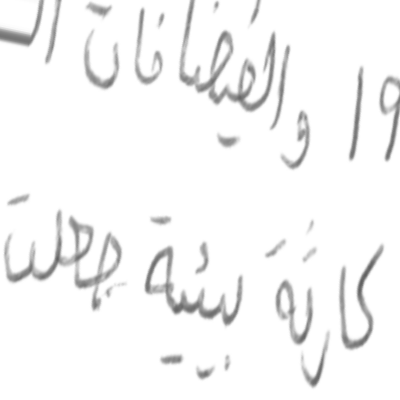 19 والفيضانات
كارثة بيئية جعلت